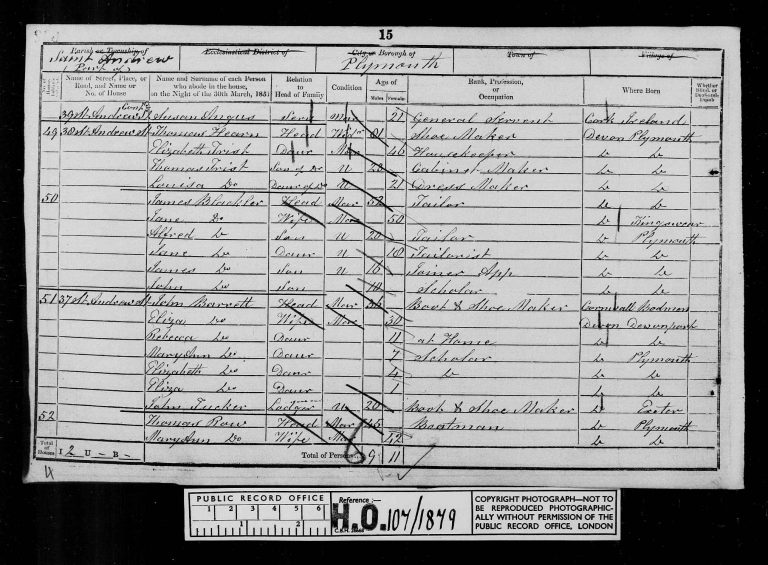 15
Parish or Township of Ecclesiastical District of City or Borough of Town of Village of
Saint Andrew Plymouth
(Part of)
Name of Street, Place, or Road, and Name or No. of House
Name and Surname of each Person who abode in the house, on the Night of the 30th March, 1851
Relation to Head of Family
Condition
Age of Males Females
Rank, Profession, or Occupation
Where Born
Whether Blind, or Deaf-and-Dumb
39 St Andrew St Contd Susan Angus Serv Mar 21 General Servent Cork Ireland
49 38 St Andrew St Thomas Hearn Head Widr 81 Shoe Maker Devon Plymouth
Elizabeth Trist Daur Mar 46 Housekeeper Do Do
Thomas Trist Son of Do U 23 Cabinet Maker Do Do
Louisa Do Daur of Do U 21 Dress Maker Do Do
50 James Blackler Head Mar 52 Tailor Do Do
Jane Do Wife Mar 50 Do Kingswear
Alfred Do Son U 20 Tailor Do Plymouth
Jane Do Daur U 18 Tailorist Do Do
James Do Son U 16 Joiner App Do Do
John Do Son 10 Scholar Do Do
51 37 St Andrew St John Barrett Head Mar 36 Boot & Shoe Maker Cornwall Bodmin
Eliza Do Wife Mar 30 Devon Devonport
Rebecca Do Daur 11 at Home Do Do
Mary Ann Do Daur 7 Scholar Do Plymouth
Elizabeth Do Daur 4 Do Do Do
Eliza Do Daur 1 Do Do
John Tucker Lodger U 20 Boot & Shoe Maker Do Exeter
52 Thomas Row Head Mar 45 Boatman Do Plymouth
Mary Ann Do Wife Mar 42 Do Do
Total of Houses I 2 U – B – Total of Persons 9 11
PUBLIC RECORD OFFICE
1 2 3 4 5 6
1 2
Reference :-
H.O. 107/1879
COPYRIGHT PHOTOGRAPH—NOT TO
BE REPRODUCED PHOTOGRAPHIC-
ALLY WITHOUT PERMISSION OF THE
PUBLIC RECORD OFFICE, LONDON